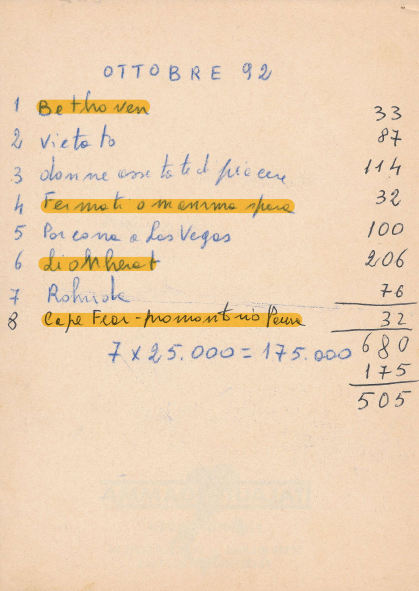 OTTOBRE 92
1 Bethoven 33
2 Vietato 87
3 donne assetate di piacere 114
4 Fermati o mamma spara 32
5 Porcona a Las Vegas 100
6 206
7 76
8 Cape Fear - promontorio Paura 32
7 x 25.000 = 175.000 680
175
505